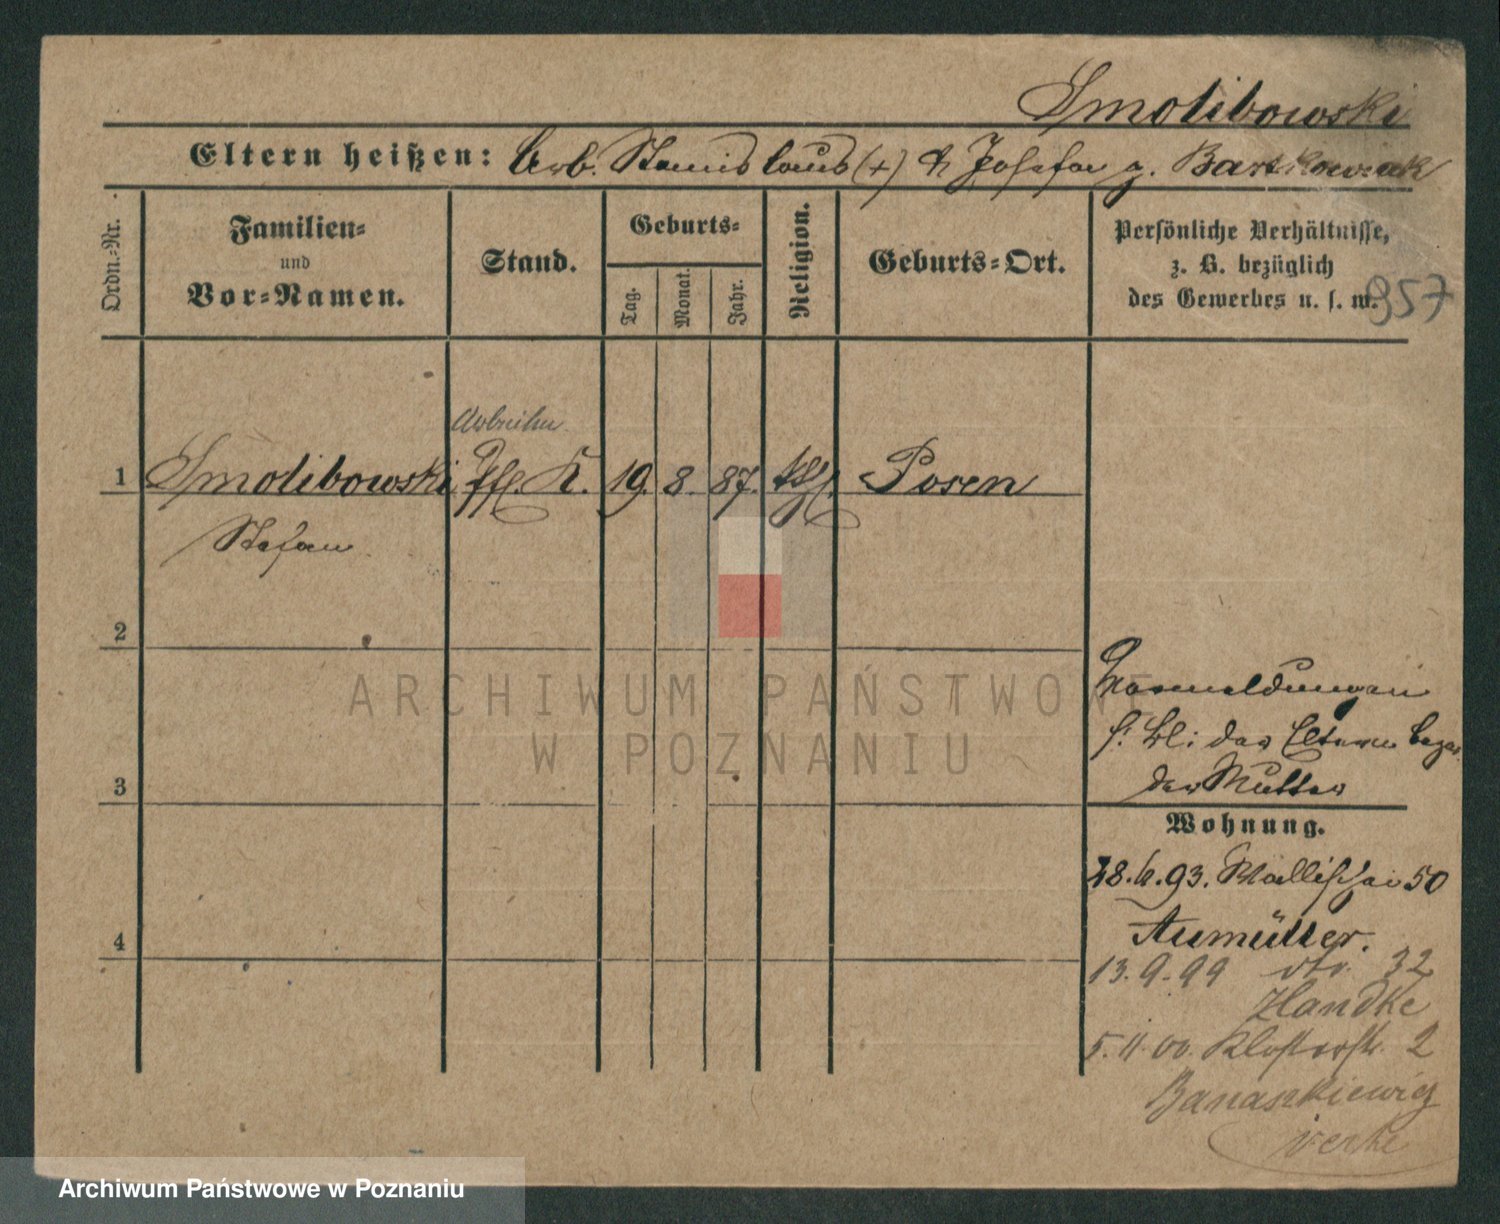 Smolibowski
Eltern heißen: Arb. Stanislaus (+) & Josefa g. Bartkowiak
Ordn.-Nr.
Familien-
und
Vor-Namen.
Stand.
Geburts-
Tag.
Monat.
Jahr.
Religion.
Geburts-Ort.
Persönliche Verhältnisse,
z. B. bezüglich
des Gewerbes u. s. w.
957
Arbeiter
1 Smolibowski Pfl. K. 19. 8. 87. kth. Posen
Stefan
2
3
4
ARCHIWUM PAŃSTWOWE
W POZNANIU
s. bei den Eltern bezw.
der Mutter
Wohnung.
28.6.93. Wallischei 50
Aumüller.
13.9.99 dto. 32
Handke
5.11.00. Klosterstr. 2
Banaszkiewicz
Archiwum Państwowe w Poznaniu